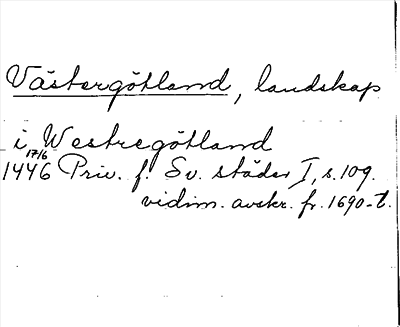 Västergötland, landskap
i Westregötland
17/6
1446 Priv. f. Sv. städer I, s. 109.
vidim. avskr. fr. 1690-t.